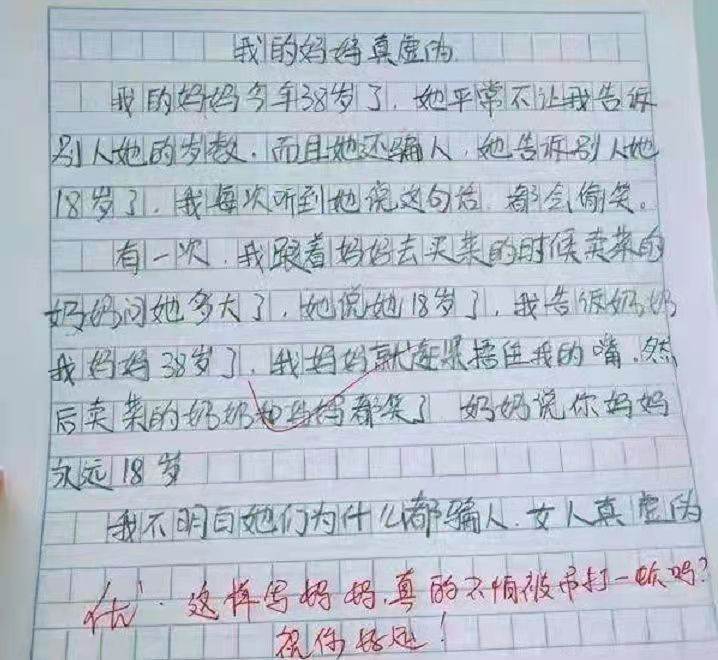 我的妈妈真虚伪
我的妈妈今年38岁了,她平常不让我告诉
别人她的岁数.而且她还骗人,她告诉别人她
18岁了,我每次听到她说这句话,都会偷笑。
有一次,我跟着妈妈去买菜的时候卖菜的
奶奶问她多大了,她说她18岁了,我告诉奶奶
我妈妈38岁了,我妈妈就赶紧捂住我的嘴.然
后卖菜的奶奶和妈妈都笑了 奶奶说你妈妈
永远18岁
我不明白她们为什么都骗人.女人真虚伪
优.这样写妈妈,真的不怕被吊打一顿吗?
祝你好运!